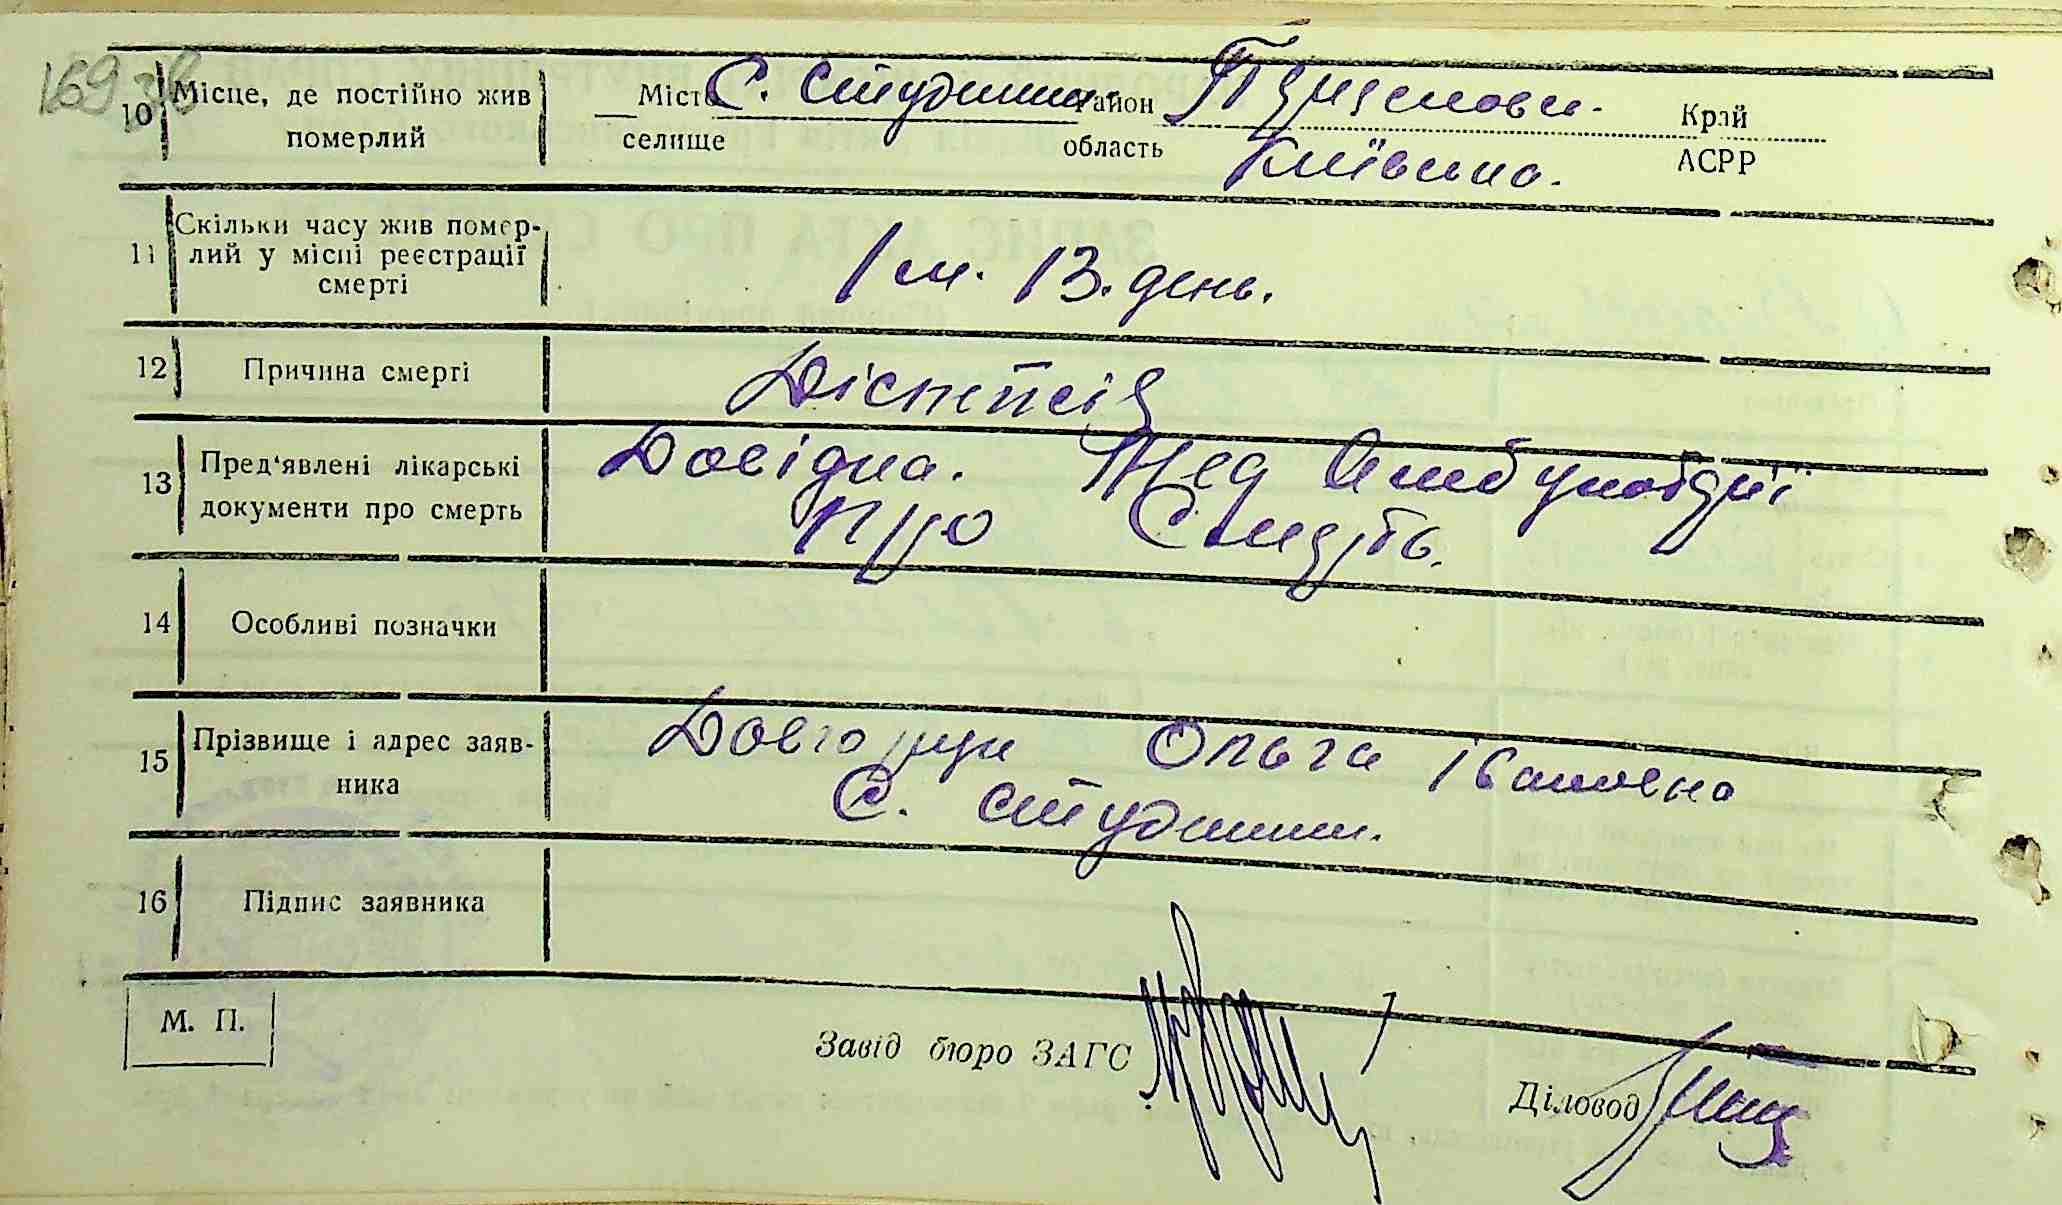 169 зв
10 Місце, де постійно жив померлий
Місто С. Студшин Район Край
селище область Київшна. АСРР
11 Скільки часу жив помер-
лий у місці реєстрації
смерті
1 м. 13. день.
12 Причина смерті
Діспепсія
13 Пред'явлені лікарські
документи про смерть
Довідка. Мед Амбулаторії
про Смерть.
14 Особливі позначки
15 Прізвище і адрес заяв-
ника
Ольга Івановна
С. Студшин.
16 Підпис заявника
М. П.
Завід бюро ЗАГС
Діловод